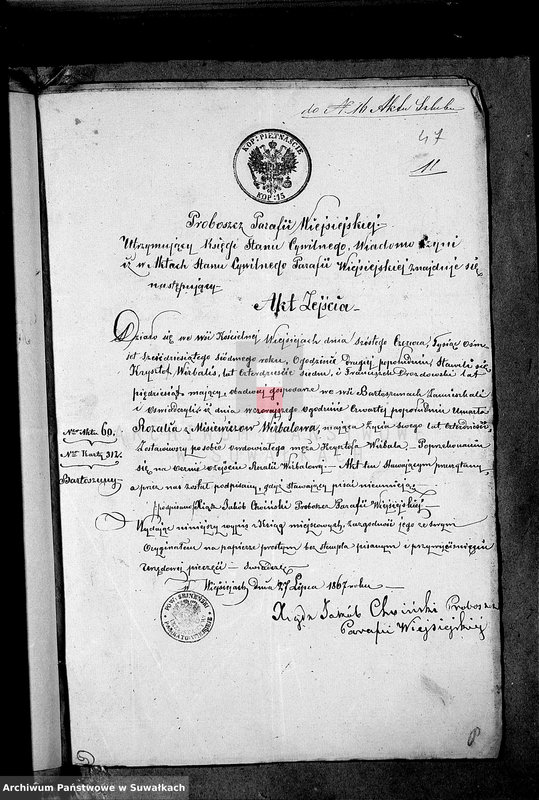 do N. 16 Aktu Szlubu
47
11
KOP: PIĘTNAŚCIE
KOP: 15
Proboszcz Parafii Wiejsiejskiej
Utrzymujący Księgi Stanu Cywilnego, Wiadomo czyni
iż w Aktach Stanu Cywilnego Parafii Wiejsiejskiej znajduje się
następujący
Akt Zejścia
Działo się we wsi Kościelnej Wiejsiejach dnia szóstego Czerwca, Tysiąc Ośm-
set sześćdziesiątego siódmego roku, o godzinie drugiej popołudniu, Stawili się
Krysztof Wirbalis, lat czterdzieście siedm, i Franciszek Drozdowski lat
pięćdziesiąt mający, obadwaj gospodarze we wsi Bartoszunach Zamieszkali
i Oświadczyli iż dnia wczorajszego o godzinie Czwartej popołudniu Umarła
Nr Aktu 60. Rozalia z Misieniczow Wirbalowa, mająca życia swego lat
Nr Karty 312. Zostawiwszy po sobie owdowiałego męża Krysztofa Wirbala. Po przekonaniu
Bartoszuny się na ocznie o zejściu Rozalii Wirbalowej. Akt ten Stawającym przeczytany
a przez nas został podpisany, gdyż stawający pisać nieumieją.
/podpisano/ Xiądz Jakób Choiński Proboszcz Parafii Wiejsiejskiej
Wydając niniejszy wypis z Ksiąg miejscowych, za zgodność jego ze swym
Oryginałem na papierze prostym bez stempla pisanym z przyciśnieniem
Urzędowej pieczęci Świadczę
w Wiejsiejach, Dnia 27 Lipca 1867 roku
Xiądz Jakób Choiński Proboszcz
Parafii Wiejsiejskiej
POW. SEJNEŃSKI
Archiwum Państwowe w Suwałkach